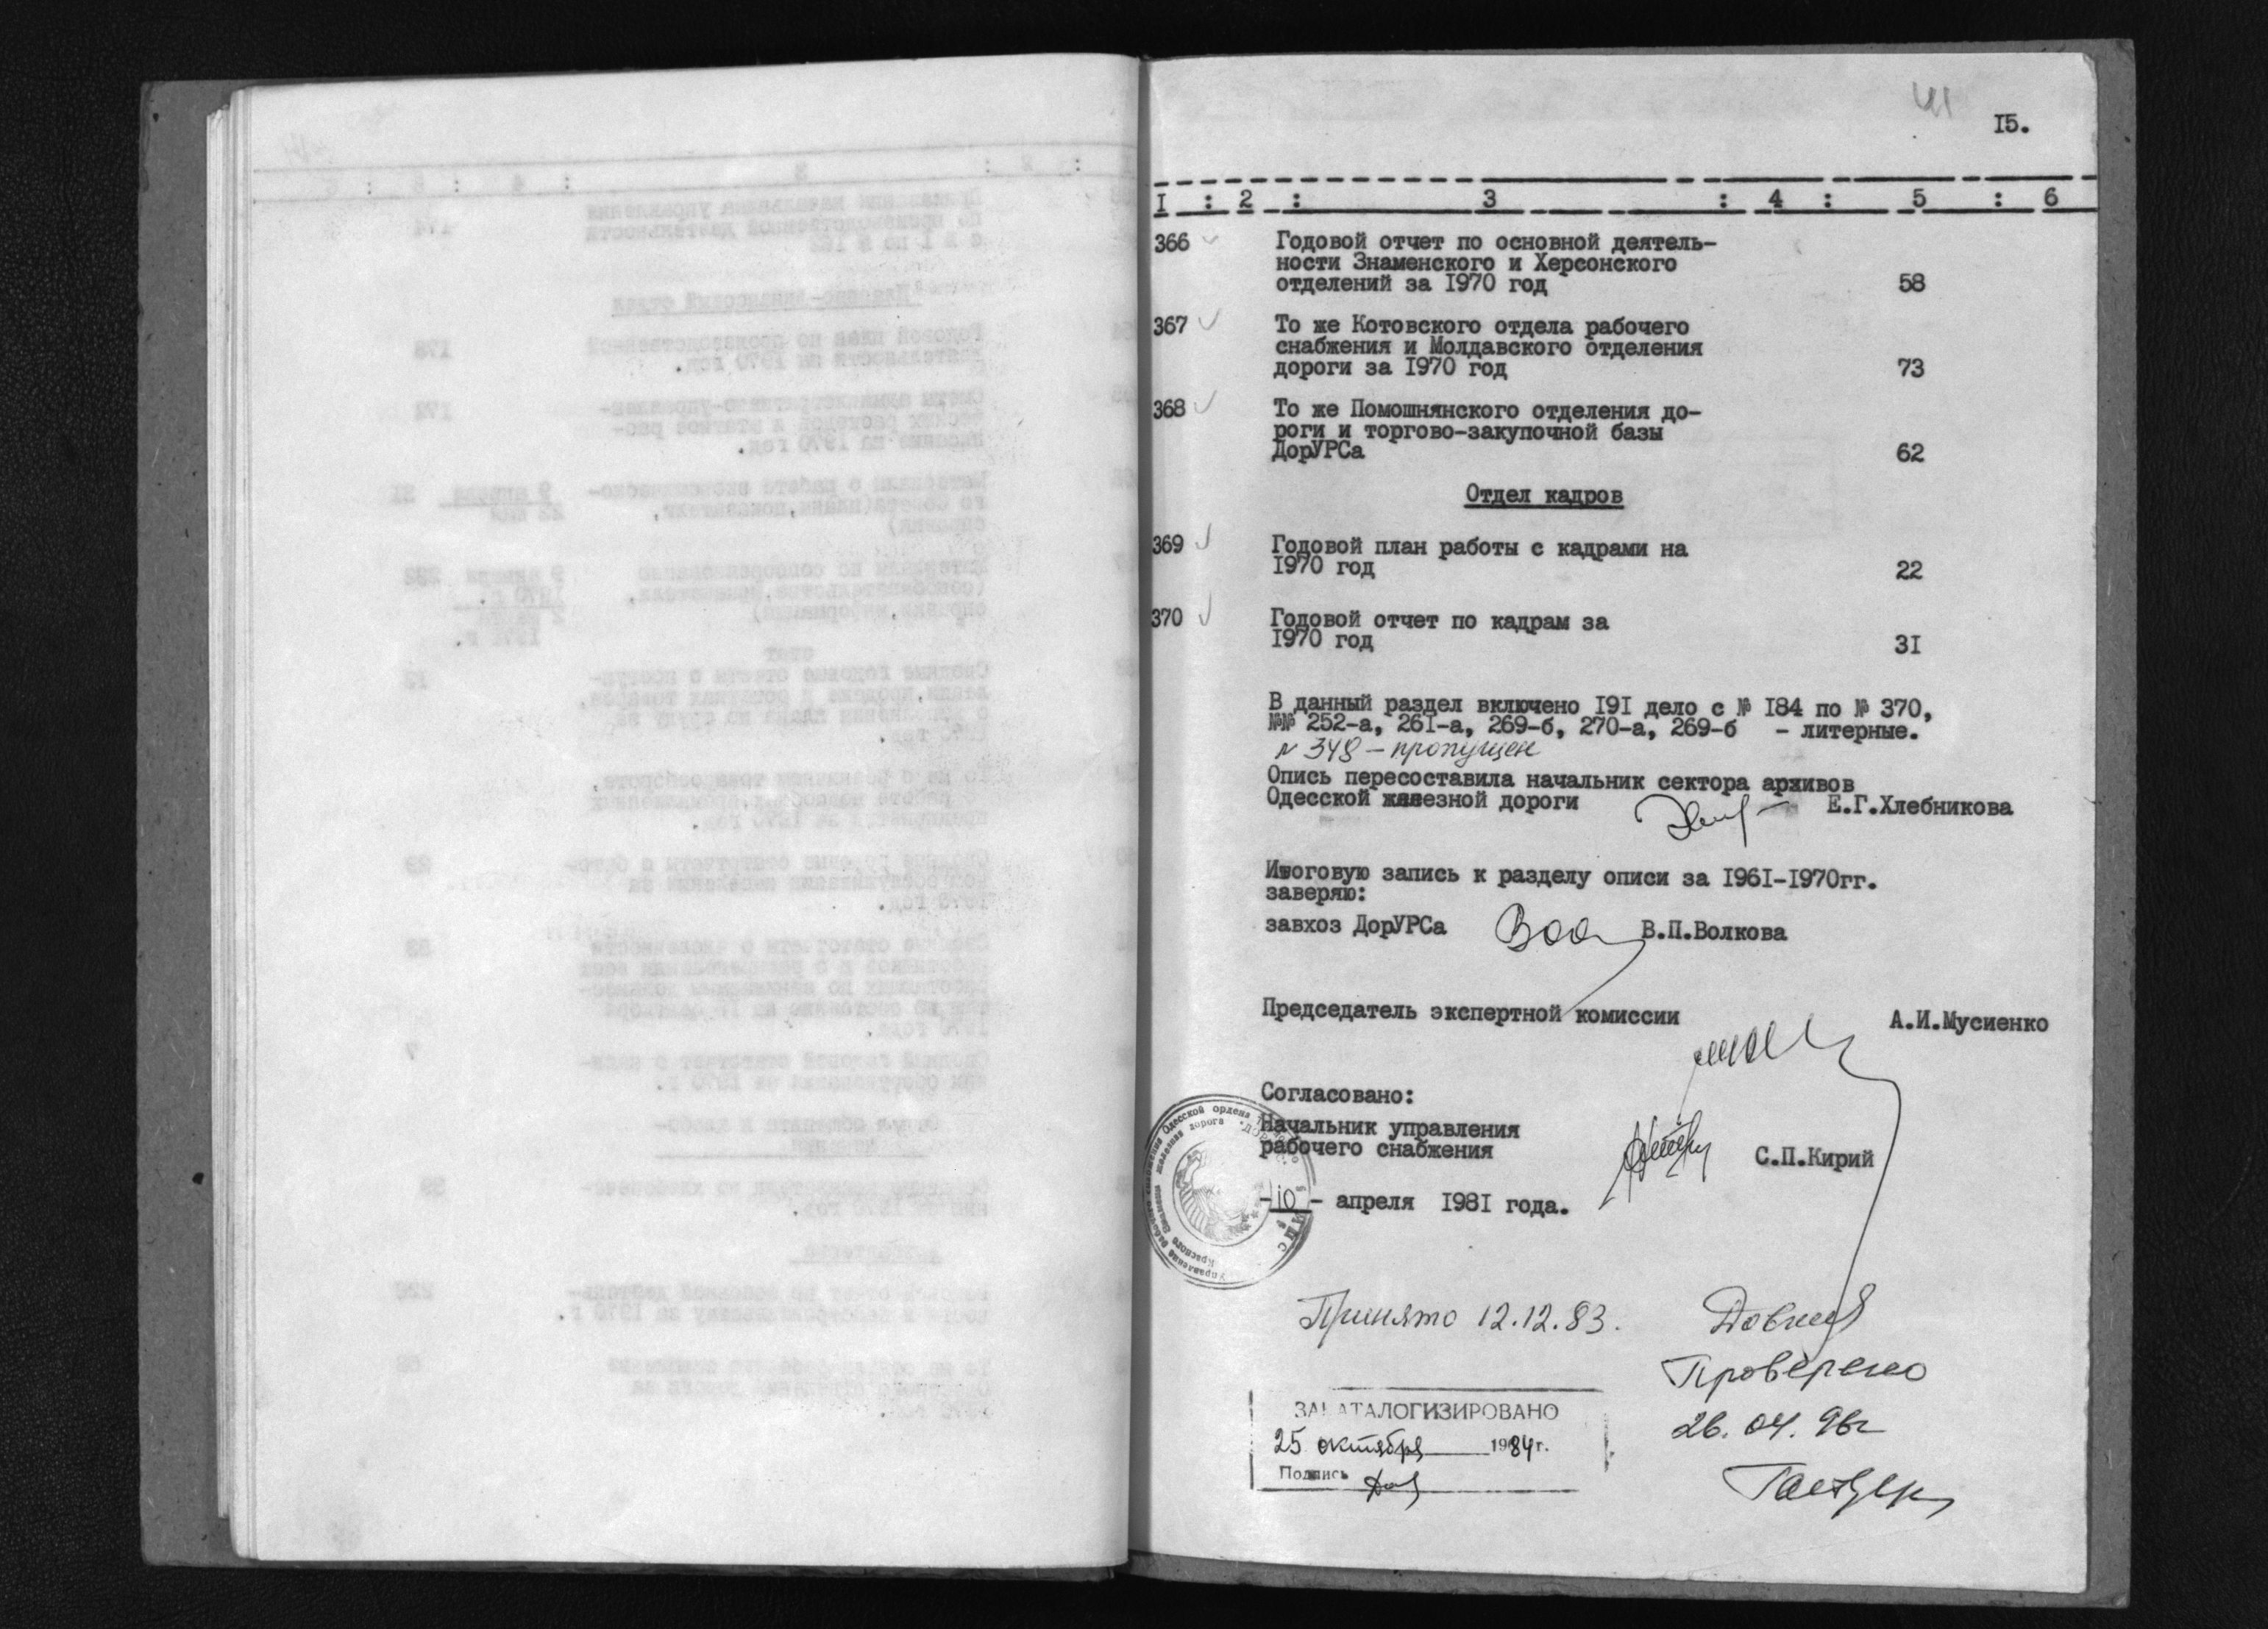 41
15.
I : 2 : 3 : 4 : 5 : 6
366 Годовой отчет по основной деятель-
ности Знаменского и Херсонского
отделений за 1970 год 58
367 То же Котовского отдела рабочего
снабжения и Молдавского отделения
дороги за 1970 год 73
368 То же Помошнянского отделения до-
роги и торгово-закупочной базы
ДорУРСа 62
Отдел кадров
369 Годовой план работы с кадрами на
1970 год 22
370 Годовой отчет по кадрам за
1970 год 31
В данный раздел включено 191 дело с № 184 по № 370,
№№ 252-а, 261-а, 269-б, 270-а, 269-б - литерные.
№ 348 - пропущен
Опись пересоставила начальник сектора архивов
Одесской железной дороги Е.Г.Хлебникова
Итоговую запись к разделу описи за 1961-1970гг.
заверяю:
завхоз ДорУРСа В.П.Волкова
Председатель экспертной комиссии А.И.Мусиенко
Согласовано:
Начальник управления
рабочего снабжения С.П.Кирий
-10- апреля 1981 года.
Принято 12.12.83.
Проверено
26.04.96г
ЗАКАТАЛОГИЗИРОВАНО
25 октября 1984г.
Подпись